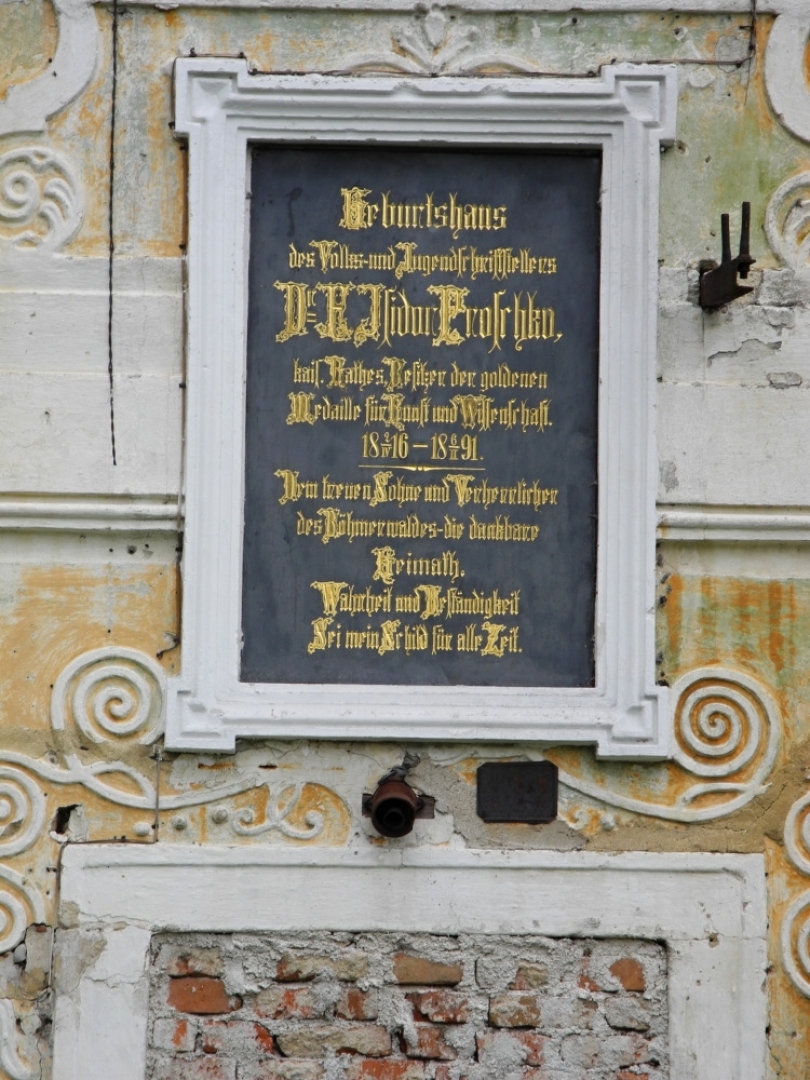 Geburtshaus
des Volks-und Jugendschriftstellers
Dr. F. Isidor Proschko,
kais. Rathes, Besitzer der goldenen
Medaille für Kunst und Wissenschaft.
18 2/IV 16 – 18 6/II 91.
Dem treuen Sohne und Verherrlicher
des Böhmerwaldes-die dankbare
Heimath.
Wahrheit und Beständigkeit
Sei mein Schild für alle Zeit.